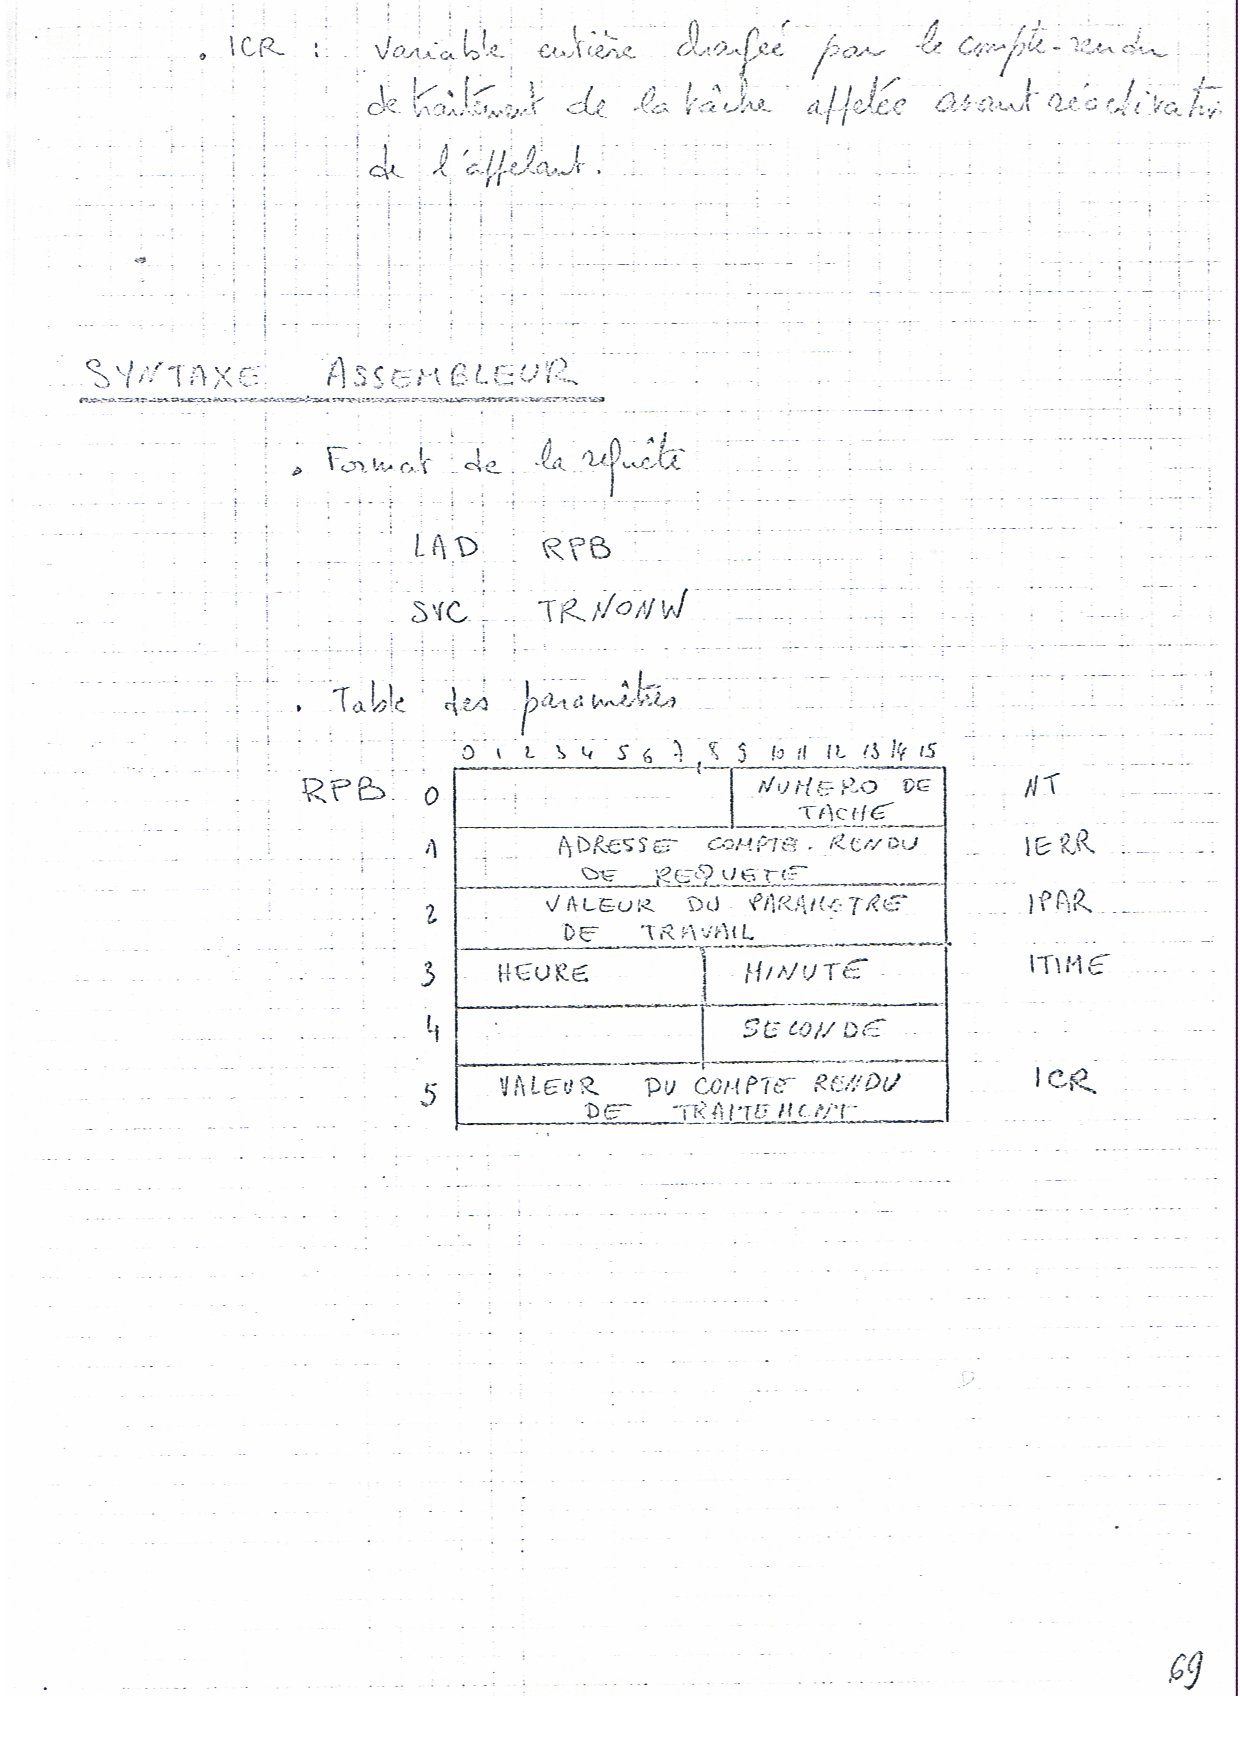 . ICR : Variable entière chargée par le compte-rendu
de traitement de la tâche appelée avant réactivation
de l'appelant.
SYNTAXE ASSEMBLEUR
. Format de la requête
LAD RPB
SVC TRNONW
. Table des paramètres
0 1 2 3 4 5 6 7 8 9 10 11 12 13 14 15
RPB 0 NUMERO DE NT
TACHE
1 ADRESSE COMPTE-RENDU IERR
DE REQUETE
2 VALEUR DU PARAMETRE IPAR
DE TRAVAIL
3 HEURE MINUTE ITIME
4 SECONDE
5 VALEUR DU COMPTE RENDU ICR
DE TRAITEMENT
69